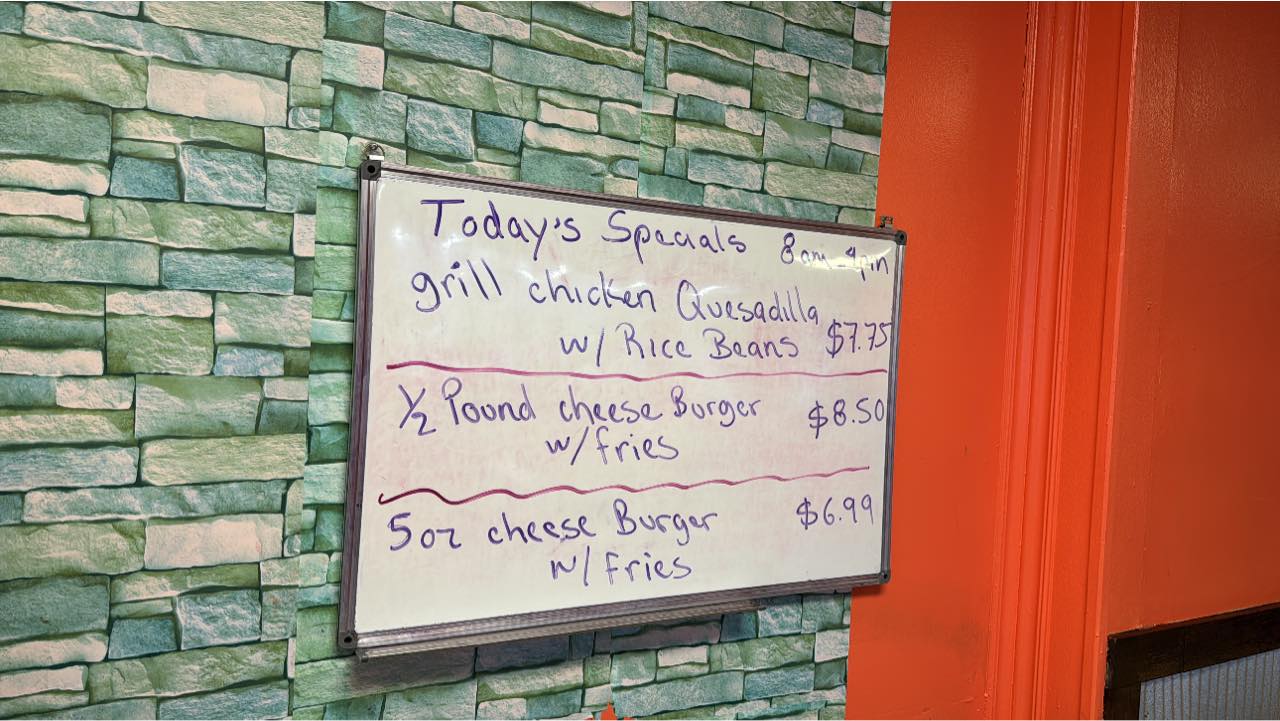 Today's Specials 8am-4pm
grill chicken Quesadilla
w/ Rice Beans $7.75
1/2 Pound cheese Burger $8.50
w/fries
5oz cheese Burger $6.99
w/fries